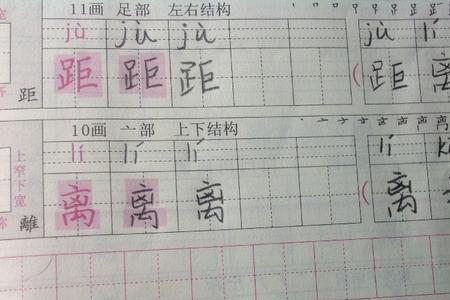 11画 足部 左右结构
jù jù jù jù lí
距 距 距 距 距 离
10画 亠部 上下结构
lí lí lí lí
上窄下宽
離 离 离 离 离